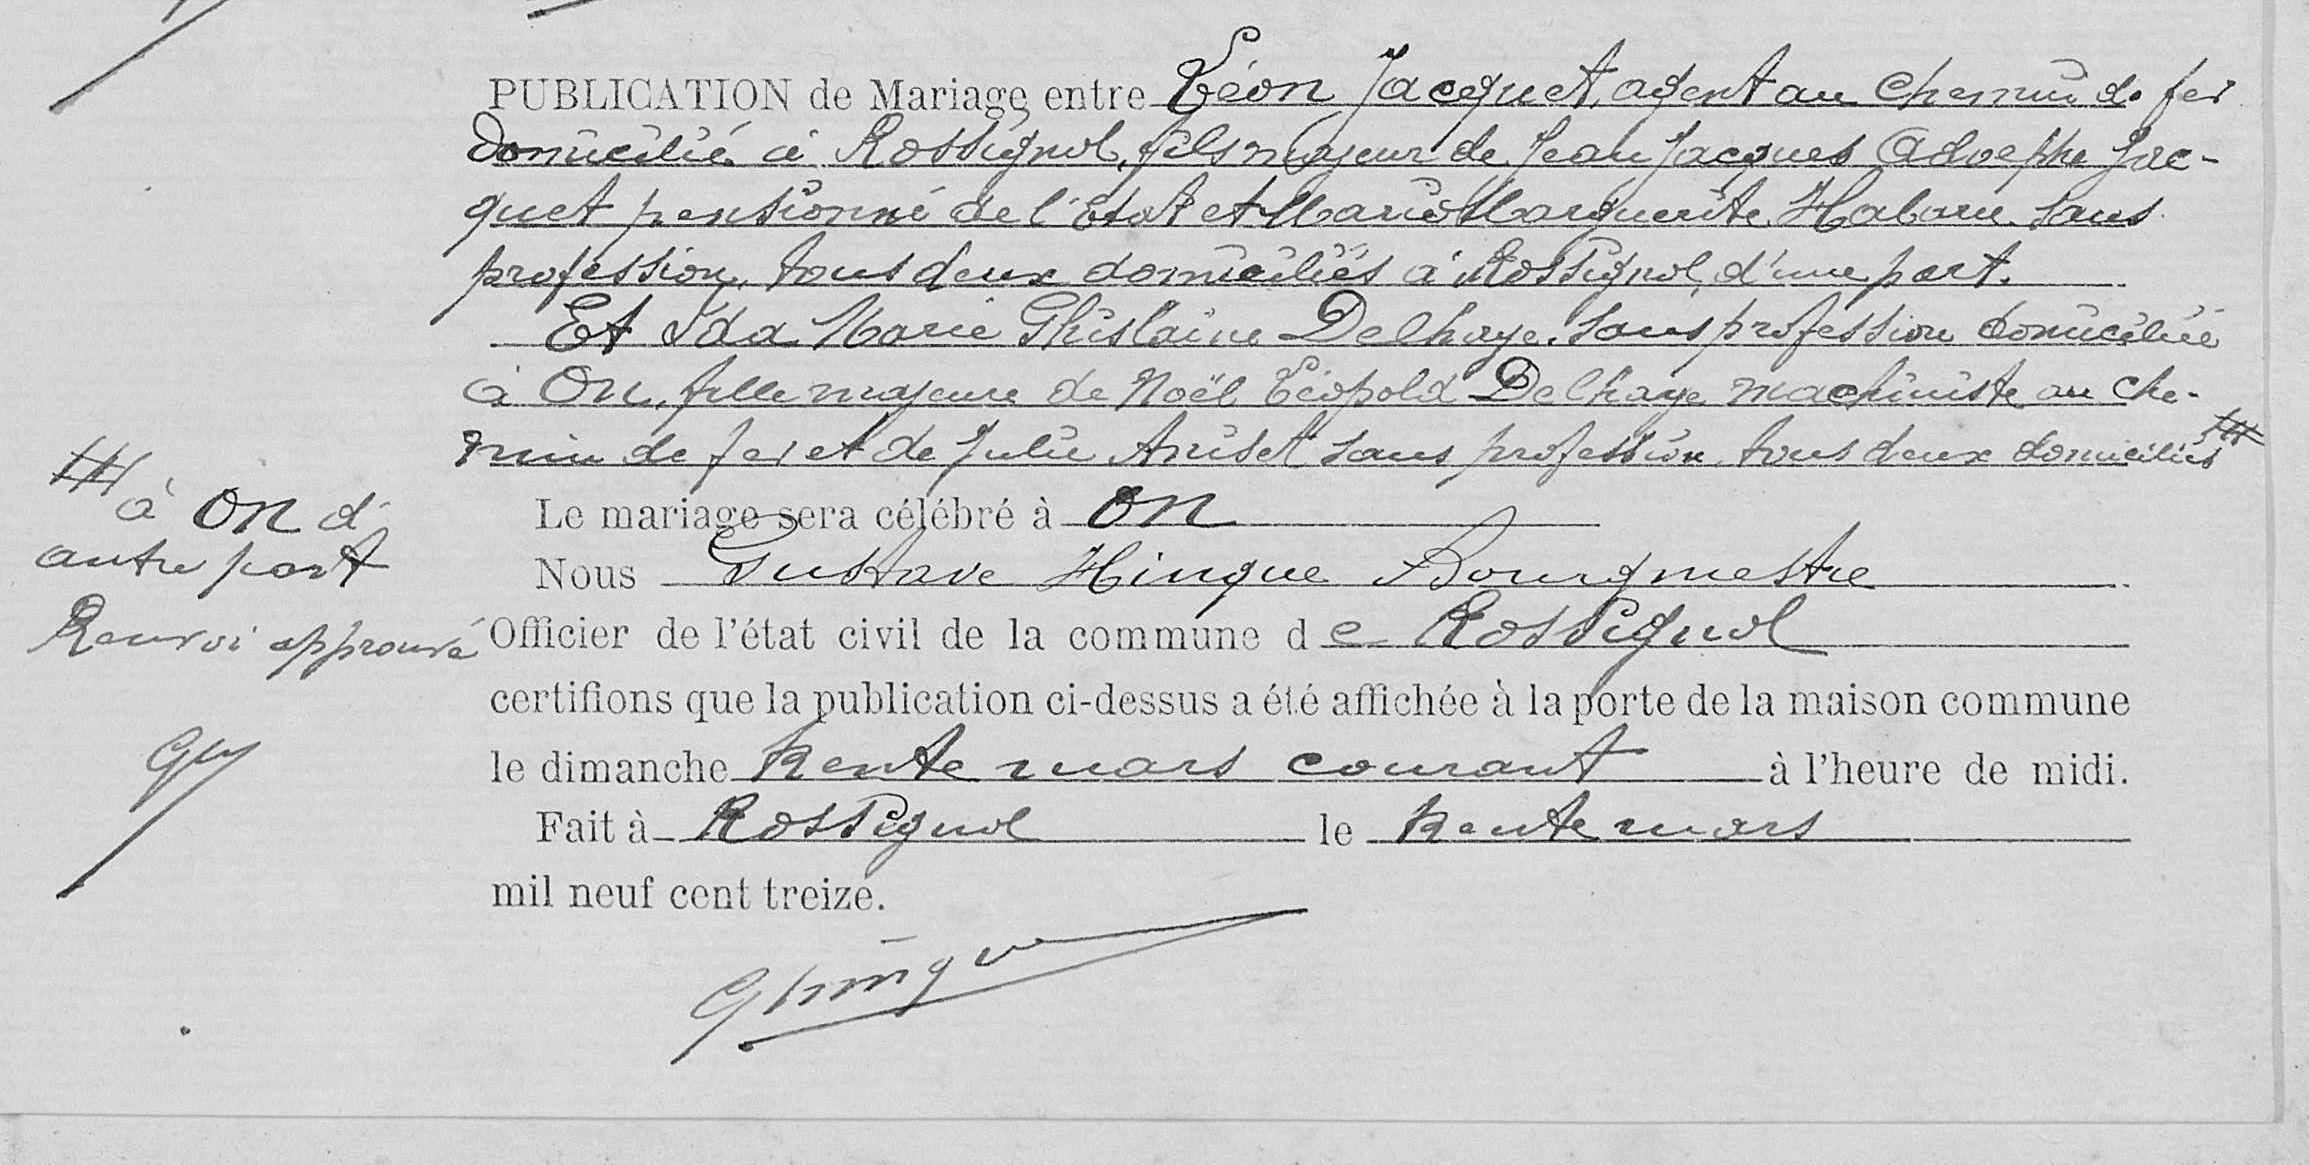 PUBLICATION de Mariage entre Léon Jacquet, agent au chemin de fer
domicilié à Rossignol, fils majeur de Jean Jacques Adolphe Jac-
quet pensionné de l'Etat et Marie Marguerite Habaru sans
profession, tous deux domiciliés à Rossignol, d'une part.
Et Ida Marie Ghislaine Delhaye, sans profession domiciliée
à On, fille majeure de Noël Léopold Delhaye machiniste au che-
min de fer et de Julie Aniset sans profession, tous deux domiciliés
à On d'
autre part
Renvoi approuvé
Le mariage sera célébré à On
Nous Gustave Hinque Bourgmestre
Officier de l'état civil de la commune de Rossignol
certifions que la publication ci-dessus a été affichée à la porte de la maison commune
le dimanche trente mars courant à l'heure de midi.
Fait à Rossignol le trente mars
mil neuf cent treize.
GHinque